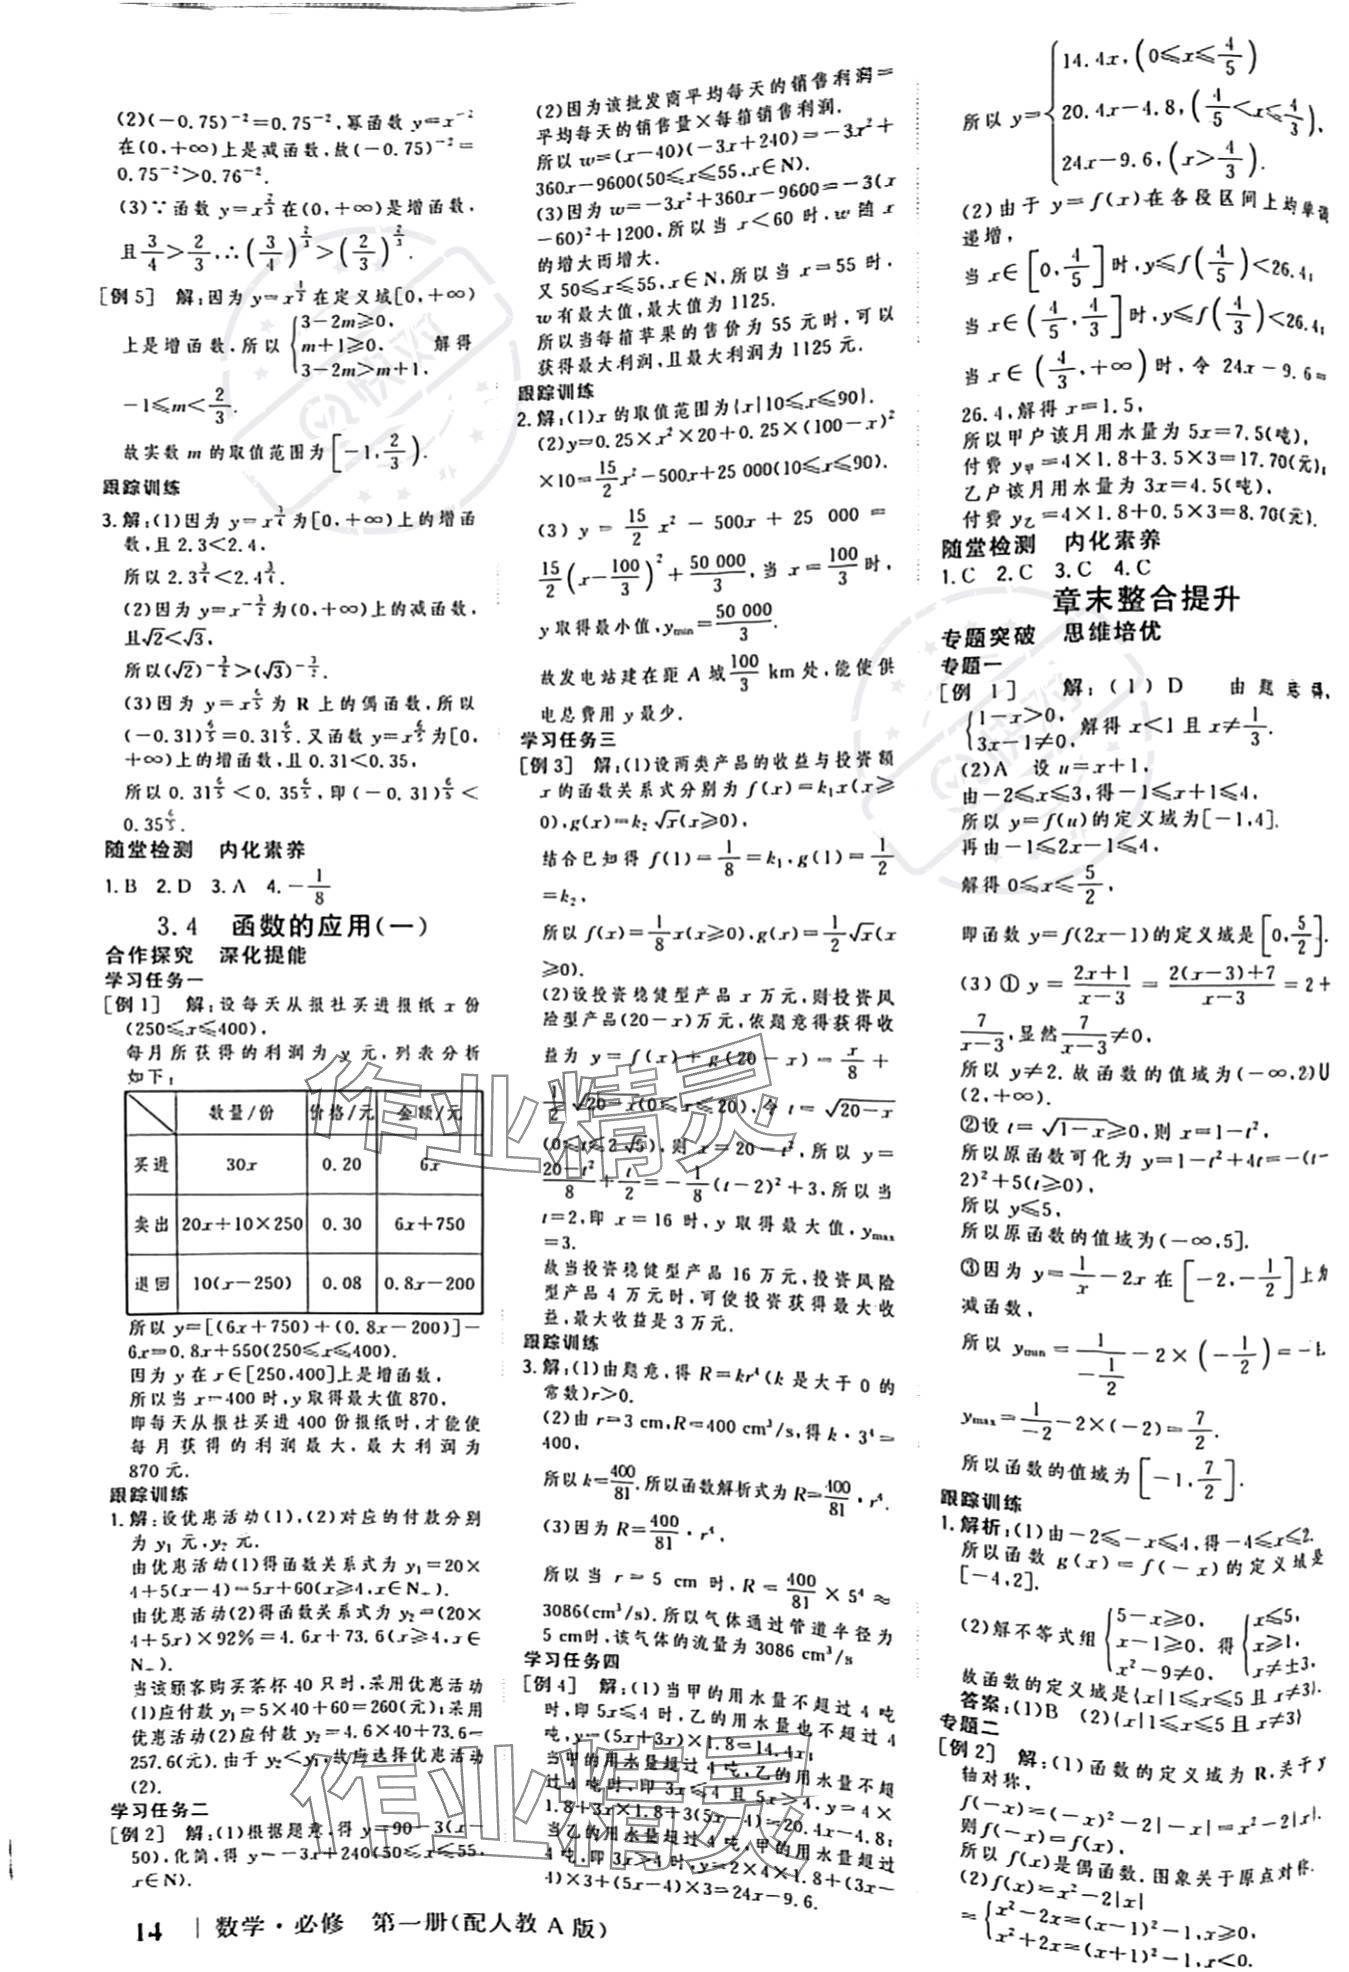 (2)(-0.75)⁻²=0.75⁻²,幂函数 y=x⁻²
在(0,+∞)上是减函数,故(-0.75)⁻²=
0.75⁻²>0.76⁻².
(3)∵函数 y=x^(2/3)在(0,+∞)是增函数,
且3/4>2/3,∴(3/4)^(2/3)>(2/3)^(2/3).
[例5] 解:因为 y=x^(1/2)在定义域[0,+∞)
上是增函数,所以{3-2m≥0, m+1≥0, 3-2m>m+1, 解得
-1≤m<2/3.
故实数 m 的取值范围为[-1,2/3).
跟踪训练
3.解:(1)因为 y=x^(3/4)为[0,+∞)上的增函
数,且 2.3<2.4,
所以 2.3^(3/4)<2.4^(3/4).
(2)因为 y=x^(-3/2)为(0,+∞)上的减函数,
且√2<√3,
所以(√2)^(-3/2)>(√3)^(-3/2).
(3)因为 y=x^(6/5)为 R 上的偶函数,所以
(-0.31)^(6/5)=0.31^(6/5).又函数 y=x^(6/5)为[0,
+∞)上的增函数,且 0.31<0.35,
所以 0.31^(6/5)<0.35^(6/5),即(-0.31)^(6/5)<
0.35^(6/5).
随堂检测 内化素养
1.B 2.D 3.A 4.-1/8
3.4 函数的应用(一)
合作探究 深化提能
学习任务一
[例1] 解:设每天从报社买进报纸 x 份
(250≤x≤400),
每月所获得的利润为 y 元,列表分析
如下:
数量/份 价格/元 金额/元
买进 30x 0.20 6x
卖出 20x+10×250 0.30 6x+750
退回 10(x-250) 0.08 0.8x-200
所以 y=[(6x+750)+(0.8x-200)]-
6x=0.8x+550(250≤x≤400).
因为 y 在 x∈[250,400]上是增函数,
所以当 x=400 时,y 取得最大值 870,
即每天从报社买进 400 份报纸时,才能使
每月获得的利润最大,最大利润为
870 元.
跟踪训练
1.解:设优惠活动(1),(2)对应的付款分别
为 y₁ 元,y₂ 元.
由优惠活动(1)得函数关系式为 y₁=20×
4+5(x-4)=5x+60(x≥4,x∈N₊).
由优惠活动(2)得函数关系式为 y₂=(20×
4+5x)×92%=4.6x+73.6(x≥4,x∈
N₊).
当该顾客购买茶杯 40 只时,采用优惠活动
(1)应付款 y₁=5×40+60=260(元);采用
优惠活动(2)应付款 y₂=4.6×40+73.6=
257.6(元).由于 y₂<y₁,故应选择优惠活动
(2).
学习任务二
[例2] 解:(1)根据题意,得 y=90-3(x-
50),化简,得 y=-3x+240(50≤x≤55,
x∈N).
14 | 数学·必修 第一册(配人教 A 版)
(2)因为该批发商平均每天的销售利润=
平均每天的销售量×每箱销售利润.
所以 w=(x-40)(-3x+240)=-3x²+
360x-9600(50≤x≤55,x∈N).
(3)因为 w=-3x²+360x-9600=-3(x
-60)²+1200,所以当 x<60 时,w 随 x
的增大而增大.
又 50≤x≤55,x∈N,所以当 x=55 时,
w 有最大值,最大值为 1125.
所以当每箱苹果的售价为 55 元时,可以
获得最大利润,且最大利润为 1125 元.
跟踪训练
2.解:(1)x 的取值范围为{x|10≤x≤90}.
(2)y=0.25×x²×20+0.25×(100-x)²
×10=15/2x²-500x+25 000(10≤x≤90).
(3) y = 15/2x² - 500x + 25 000 =
15/2(x-100/3)²+50 000/3,当 x=100/3时,
y 取得最小值,y_min=50 000/3.
故发电站建在距 A 城100/3 km 处,能使供
电总费用 y 最少.
学习任务三
[例3] 解:(1)设两类产品的收益与投资额
x 的函数关系式分别为 f(x)=k₁x(x≥
0),g(x)=k₂√x(x≥0),
结合已知得 f(1)=1/8=k₁,g(1)=1/2
=k₂,
所以 f(x)=1/8x(x≥0),g(x)=1/2√x(x
≥0).
(2)设投资稳健型产品 x 万元,则投资风
险型产品(20-x)万元,依题意得获得收
益为 y=f(x)+g(20-x)=x/8+
1/2√(20-x)(0≤x≤20),令 t=√(20-x)
(0≤t≤2√5),则 x=20-t²,所以 y=
(20-t²)/8+t/2=-1/8(t-2)²+3,所以当
t=2,即 x=16 时,y 取得最大值,y_max
=3.
故当投资稳健型产品 16 万元,投资风险
型产品 4 万元时,可使投资获得最大收
益,最大收益是 3 万元.
跟踪训练
3.解:(1)由题意,得 R=kr⁴(k 是大于 0 的
常数)r>0.
(2)由 r=3 cm,R=400 cm³/s,得 k·3⁴=
400,
所以 k=400/81,所以函数解析式为 R=400/81·r⁴.
(3)因为 R=400/81·r⁴,
所以当 r=5 cm 时,R=400/81×5⁴≈
3086(cm³/s).所以气体通过管道半径为
5 cm时,该气体的流量为 3086 cm³/s
学习任务四
[例4] 解:(1)当甲的用水量不超过 4 吨
时,即 5x≤4 时,乙的用水量也不超过 4
吨,y=(5x+3x)×1.8=14.4x;
当甲的用水量超过 4 吨,乙的用水量不超
过 4 吨时,即 3x≤4 且 5x>4,y=4×
1.8+3x×1.8+3(5x-4)=20.4x-4.8;
当乙的用水量超过 4 吨,甲的用水量超过 4
吨,即 3x>4 时,y=2×4×1.8+(3x-
4)×3+(5x-4)×3=24x-9.6.
所以 y={14.4x,(0≤x≤4/5) 20.4x-4.8,(4/5<x≤4/3), 24x-9.6,(x>4/3).
(2)由于 y=f(x)在各段区间上均单调
递增,
当 x∈[0,4/5]时,y≤f(4/5)<26.4;
当 x∈(4/5,4/3]时,y≤f(4/3)<26.4;
当 x∈(4/3,+∞)时,令 24x-9.6=
26.4,解得 x=1.5,
所以甲户该月用水量为 5x=7.5(吨),
付费 y甲=4×1.8+3.5×3=17.70(元);
乙户该月用水量为 3x=4.5(吨),
付费 y乙=4×1.8+0.5×3=8.70(元).
随堂检测 内化素养
1.C 2.C 3.C 4.C
章末整合提升
专题突破 思维培优
专题一
[例 1] 解:(1)D 由题意得,
{1-x>0, 3x-1≠0, 解得 x<1 且 x≠1/3.
(2)A 设 u=x+1,
由-2≤x≤3,得-1≤x+1≤4,
所以 y=f(u)的定义域为[-1,4].
再由-1≤2x-1≤4,
解得 0≤x≤5/2,
即函数 y=f(2x-1)的定义域是[0,5/2].
(3)① y=(2x+1)/(x-3)=(2(x-3)+7)/(x-3)=2+
7/(x-3),显然7/(x-3)≠0,
所以 y≠2.故函数的值域为(-∞,2)∪
(2,+∞).
②设 t=√(1-x)≥0,则 x=1-t²,
所以原函数可化为 y=1-t²+4t=-(t-
2)²+5(t≥0),
所以 y≤5,
所以原函数的值域为(-∞,5].
③因为 y=1/x-2x 在[-2,-1/2]上为
减函数,
所以 y_min=1/(-1/2)-2×(-1/2)=-1.
y_max=1/(-2)-2×(-2)=7/2.
所以函数的值域为[-1,7/2].
跟踪训练
1.解析:(1)由-2≤-x≤4,得-4≤x≤2.
所以函数 g(x)=f(-x)的定义域是
[-4,2].
(2)解不等式组{5-x≥0, x-1≥0, x²-9≠0, 得{x≤5, x≥1, x≠±3,
故函数的定义域是{x|1≤x≤5 且 x≠3}.
答案:(1)B (2){x|1≤x≤5 且 x≠3}
专题二
[例2] 解:(1)函数的定义域为 R,关于
轴对称,
f(-x)=(-x)²-2|-x|=x²-2|x|.
则 f(-x)=f(x),
所以 f(x)是偶函数.图象关于原点对称.
(2)f(x)=x²-2|x|
={x²-2x=(x-1)²-1,x≥0, x²+2x=(x+1)²-1,x<0.
作业精灵
作业精灵
快对
快对